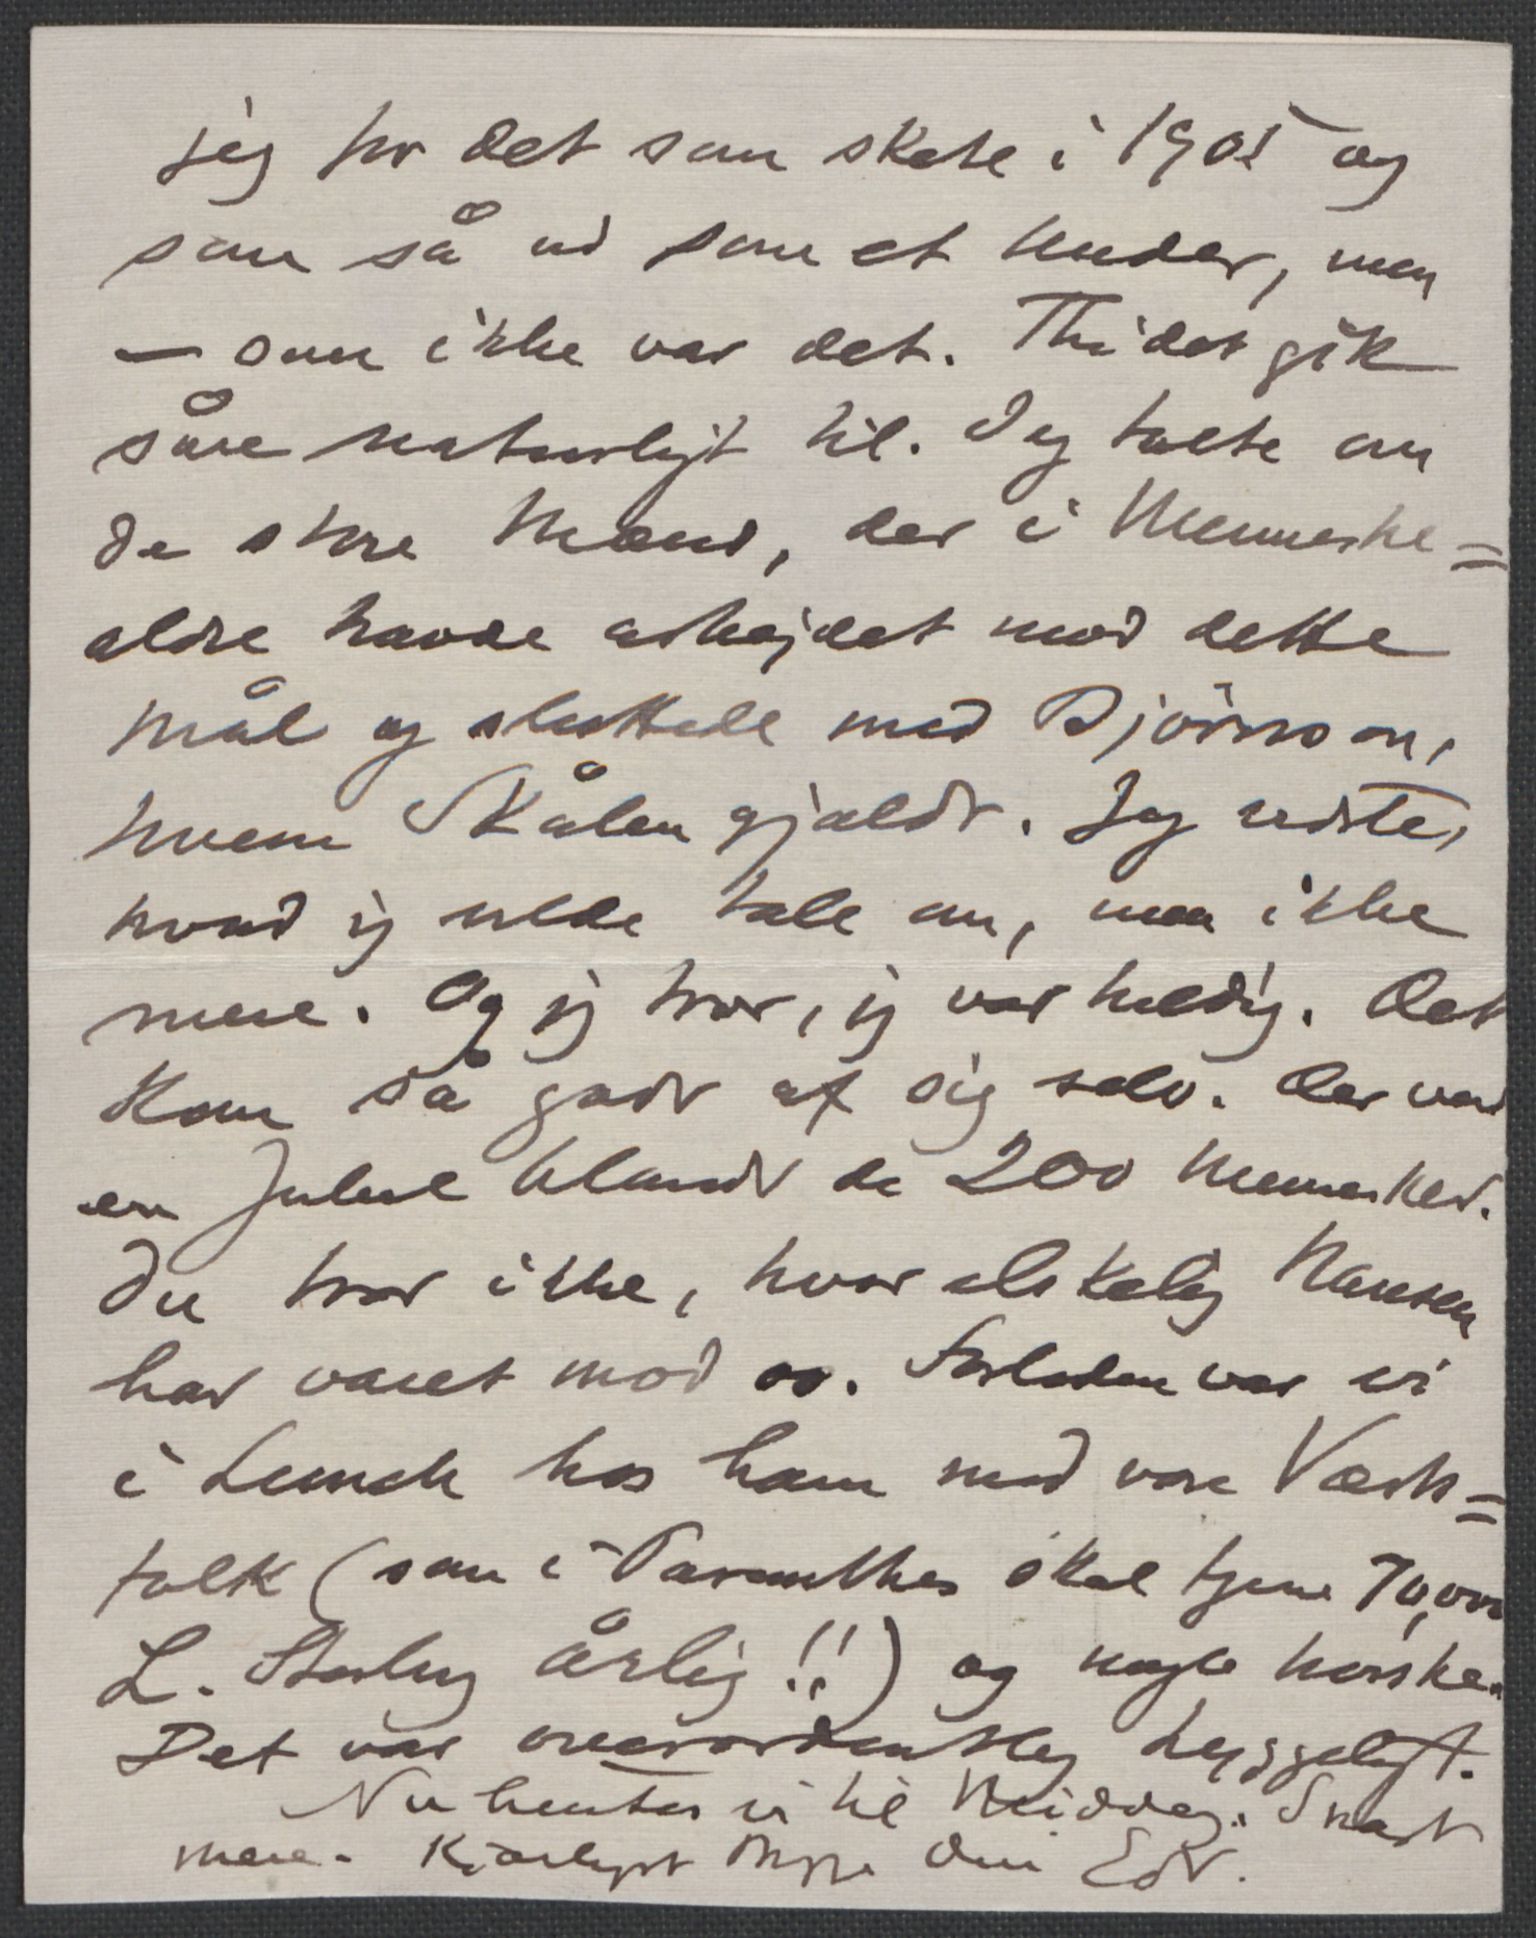 jeg for det som skete i 1905 og
som så ud som et Under, men
– som ikke var det. Thi det gik
såre naturligt til. Jeg talte om
de store Mænd, der i Menneske=
aldre havde arbejdet mod dette
Mål og sluttede med Bjørnson,
hvem Skålen gjaldt. Jeg vidste,
hvad jeg vilde tale om, men ikke
mere. Og jeg tror, jeg var heldig. Det
kom så godt af sig selv. Der var
en Jubel blandt de 200 Mennesker.
Du tror ikke, hvor elskelig Nansen
har været mod os. Forleden var vi
i Lunch hos ham med vore Værts=
folk (som i Paranthes skal tjene 70,000
L. Sterling årlig!!) og nogle norske.
Det var overordentlig hyggeligt.
Nu hentes vi til Middag. Snart
mere. Kjærligst Din Edv.